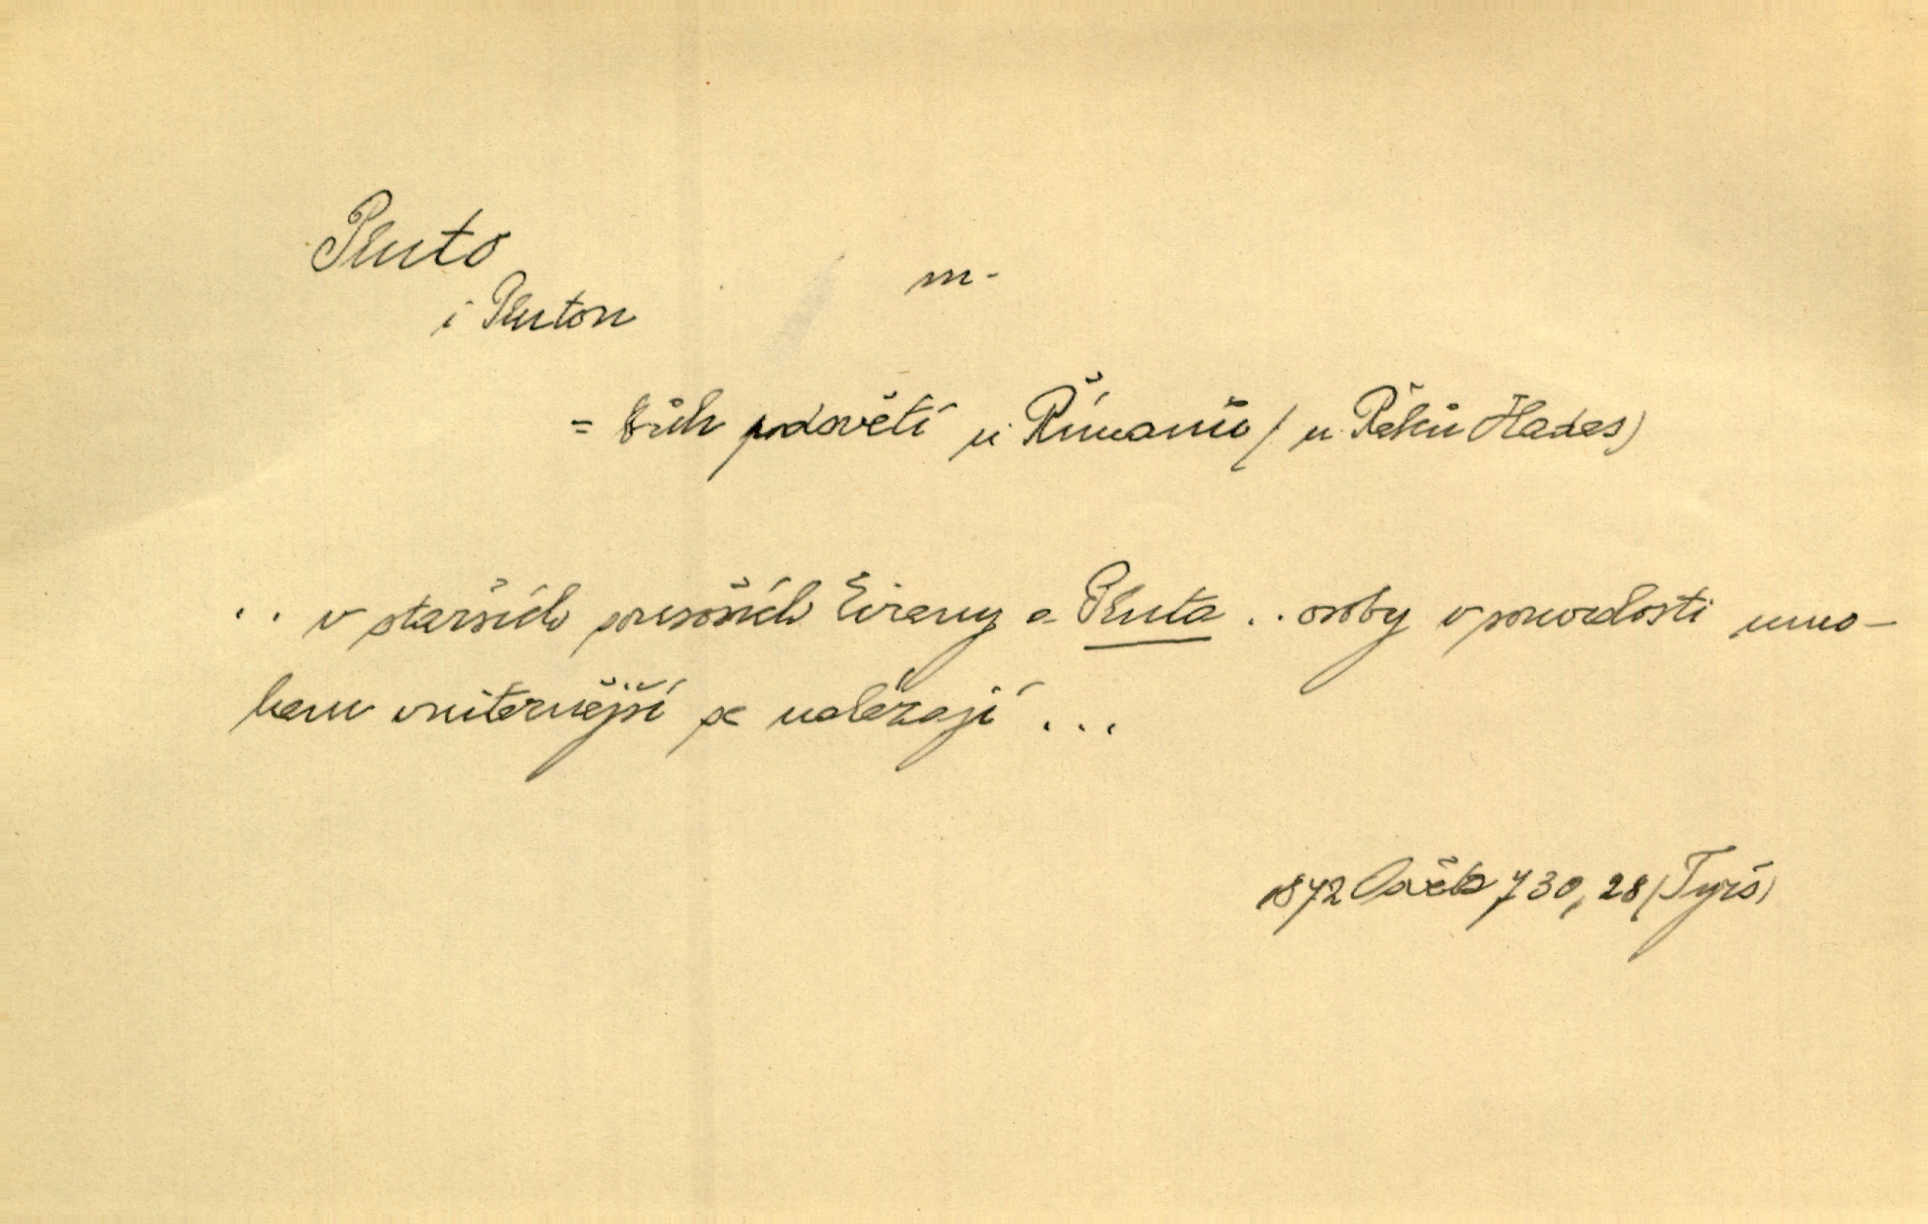 Pluto
m.
i Pluton
= bůh podsvětí u Římanů (u Řeků Hades)
.. v starších sousoších Eireny a Pluta .. osoby v pouvdosti mno-
hem vniternější se nalézají ...
1872 Osvěta 730, 28 (Tyrš)